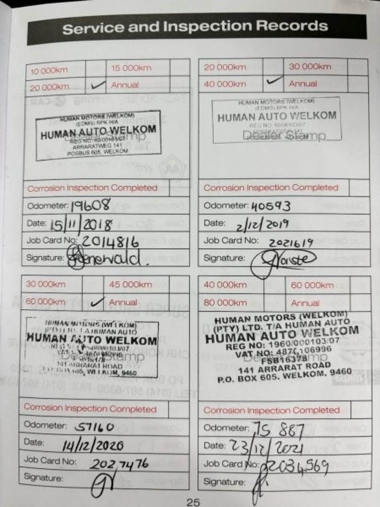 Service and Inspection Records
10 000km 15 000km
20 000km ✓ Annual
HUMAN MOTORS (WELKOM)
HUMAN AUTO WELKOM
ARRARATWEG 141
POSBUS 605, WELKOM
Corrosion Inspection Completed
Odometer: 19608
Date: 15/11/2018
Job Card No: 2014816
Signature:
20 000km 30 000km
40 000km ✓ Annual
HUMAN MOTORS (WELKOM)
HUMAN AUTO WELKOM
Dealer Stamp
Corrosion Inspection Completed
Odometer: 40593
Date: 2/12/2019
Job Card No: 2021619
Signature:
30 000km 45 000km
60 000km ✓ Annual
HUMAN MOTORS (WELKOM)
HUMAN AUTO WELKOM
141 ARRARAT ROAD
WELKOM, 9460
Corrosion Inspection Completed
Odometer: 57160
Date: 14/12/2020
Job Card No: 2027476
Signature:
40 000km 60 000km
80 000km Annual
HUMAN MOTORS (WELKOM)
(PTY) LTD. T/A HUMAN AUTO
HUMAN AUTO WELKOM
REG NO: 1960/000103/07
VAT NO: 4870106996
FSB16378
141 ARRARAT ROAD
P.O. BOX 605, WELKOM, 9460
Corrosion Inspection Completed
Odometer: 75 887
Date: 23/12/2021
Job Card No: 2034569
Signature:
25